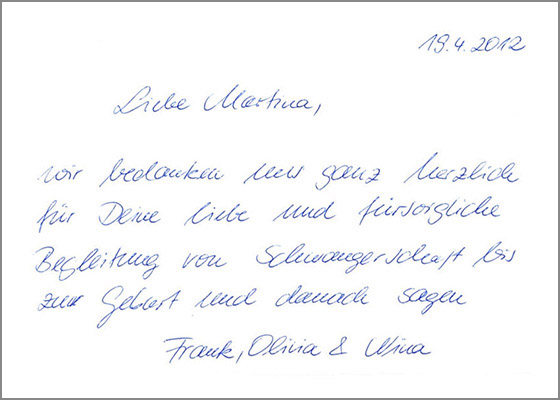 19.4.2012
Liebe Martina,
wir bedanken uns ganz herzlich
für Deine liebe und fürsorgliche
Begleitung von Schwangerschaft bis
zur Geburt und danach sagen
Frank, Olivia & Mina